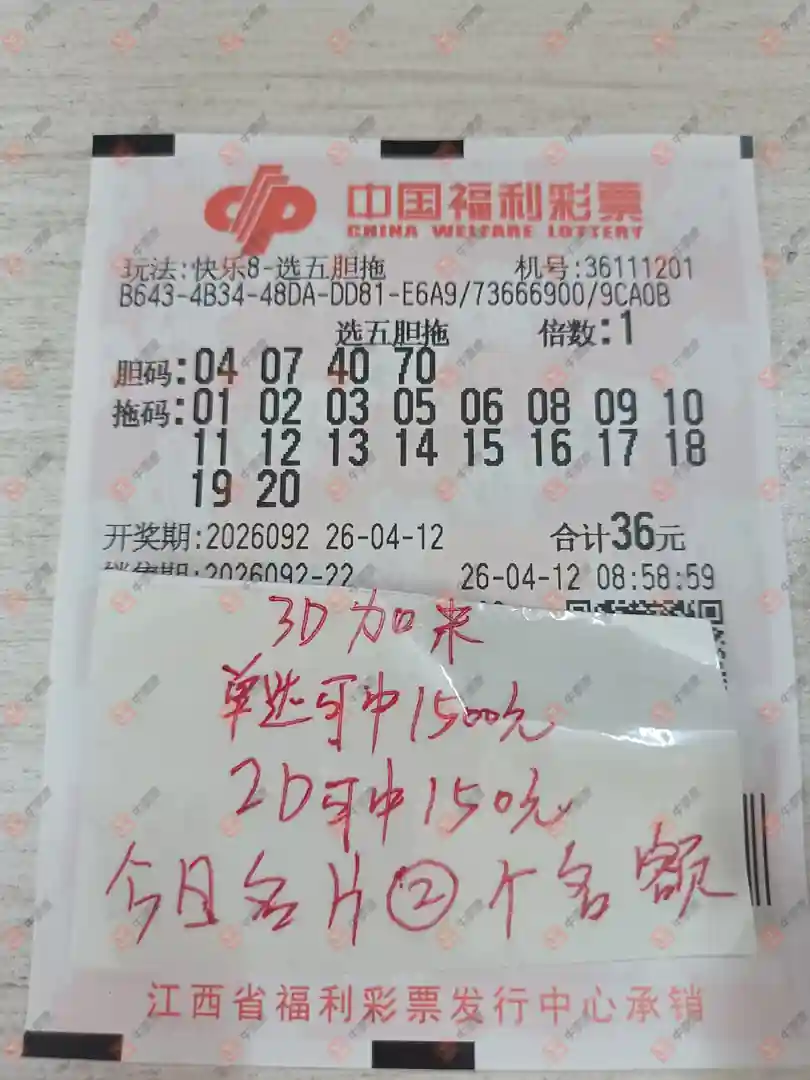 中国福利彩票
CHINA WELFARE LOTTERY
玩法:快乐8-选五胆拖 机号:36111201
B643-4B34-48DA-DD81-E6A9/73666900/9CA0B
选五胆拖 倍数:1
胆码:04 07 40 70
拖码:01 02 03 05 06 08 09 10
11 12 13 14 15 16 17 18
19 20
开奖期:2026092 26-04-12 合计36元
销售期:2026092-22 26-04-12 08:58:59
3D加来
单选可中1500元
2D可中150元
今日名片②个名额
江西省福利彩票发行中心承销